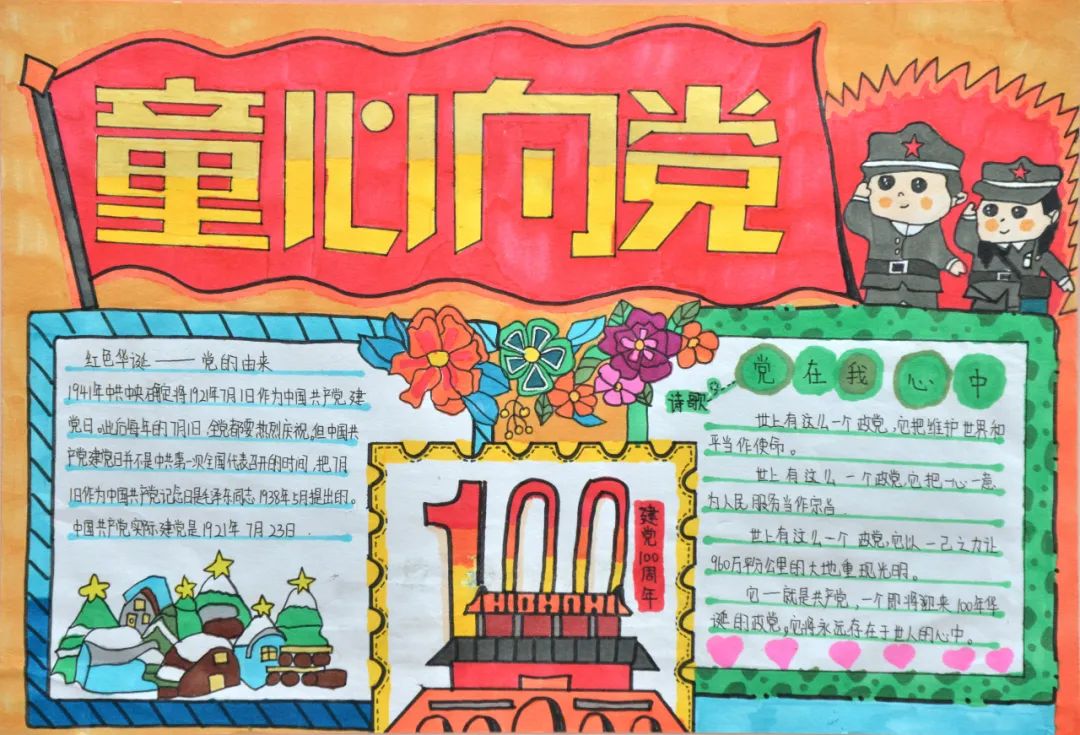 童心向党
红色华诞 —— 党的由来
1941年中共中央确定将1921年7月1日作为中国共产党建
党日。此后每年的7月1日全党都要热烈庆祝。但中国共
产党建党日并不是中共第一次全国代表召开的时间，把7月
1日作为中国共产党记念日是毛泽东同志1938年5月提出的。
中国共产党实际建党是1921年7月23日.
100
建党100周年
诗歌
党在我心中
世上有这么一个政党，它把维护世界和
平当作使命。
世上有这么一个政党它把一心一意
为人民服务当作宗旨.
世上有这么一个政党，它以一己之力让
960万平方公里的大地重现光明。
它一就是共产党，一个即将迎来100年华
诞的政党。它将永远存在于世人的心中。